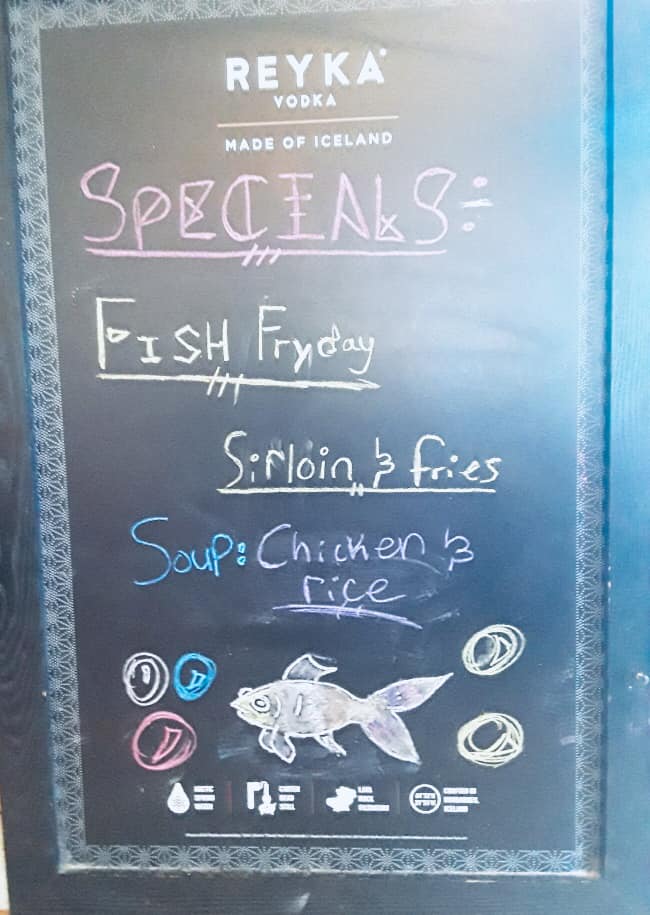 REYKA
VODKA
MADE OF ICELAND
SPECIALS:
FISH Fryday
Sirloin & fries
Soup: Chicken &
rice